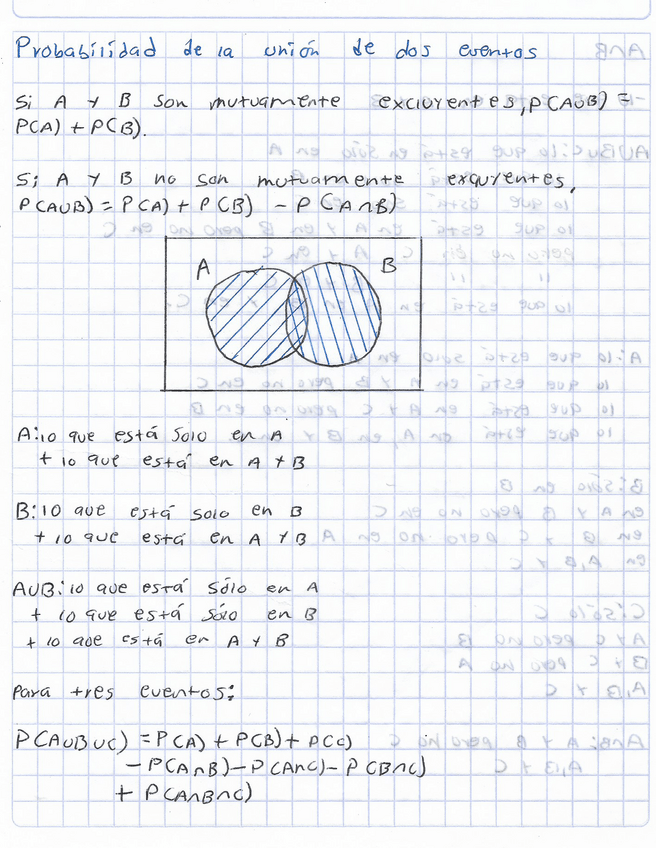 Probabilidad de la unión de dos eventos
Si A y B son mutuamente excluyentes, P(A∪B) =
P(A) + P(B).
Si A y B no son mutuamente exquyentes,
P(A∪B) = P(A) + P(B) - P(A∩B)
A B
A: lo que está solo en A
+ lo que está en A y B
B: lo que está solo en B
+ lo que está en A y B
A∪B: lo que está sólo en A
+ lo que está sólo en B
+ lo que está en A y B
Para tres eventos:
P(A∪B∪C) = P(A) + P(B) + P(C)
- P(A∩B) - P(A∩C) - P(B∩C)
+ P(A∩B∩C)